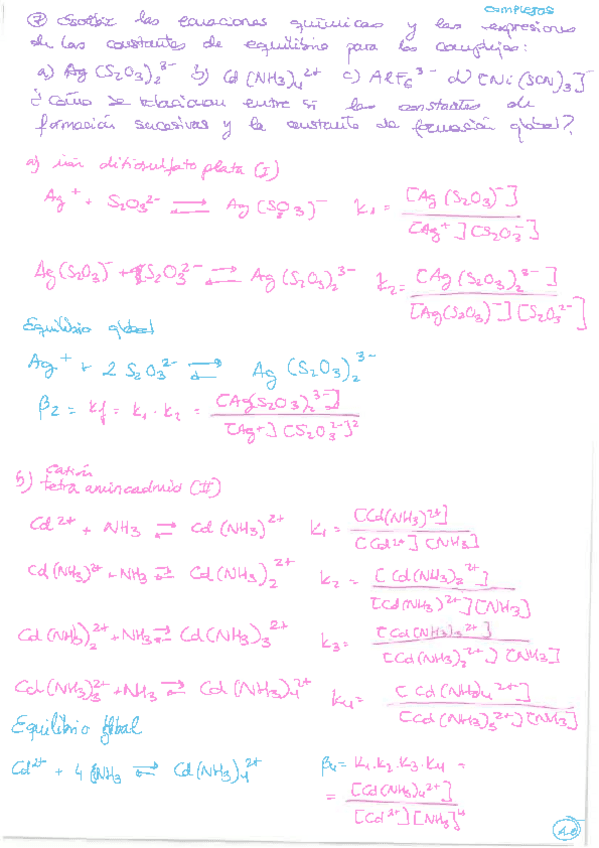 COMPLEJOS
⑦ Escribir las ecuaciones químicas y las expresiones
de las constantes de equilibrio para los complejos:
a) Ag(S2O3)2^3- b) Cd(NH3)4^2+ c) AlF6^3- d) [Ni(SCN)3]^-
¿Cómo se relacionan entre sí las constantes de
formación sucesivas y la constante de formación global?
a) ión ditiosulfato plata (I)
Ag^+ + S2O3^2- ⇌ Ag(SO3)^- K1 = [Ag(S2O3)^-] / [Ag^+][S2O3^-]
Ag(S2O3)^- + S2O3^2- ⇌ Ag(S2O3)2^3- K2 = [Ag(S2O3)2^3-] / [Ag(S2O3)^-][S2O3^2-]
Equilibrio global
Ag^+ + 2 S2O3^2- ⇌ Ag(S2O3)2^3-
β2 = Kf = K1 · K2 = [Ag(S2O3)2^3-] / [Ag+][S2O3^2-]^2
b) catión tetraamincadmio (II)
Cd^2+ + NH3 ⇌ Cd(NH3)^2+ K1 = [Cd(NH3)^2+] / [Cd^2+][NH3]
Cd(NH3)^2+ + NH3 ⇌ Cd(NH3)2^2+ K2 = [Cd(NH3)2^2+] / [Cd(NH3)^2+][NH3]
Cd(NH3)2^2+ + NH3 ⇌ Cd(NH3)3^2+ K3 = [Cd(NH3)3^2+] / [Cd(NH3)2^2+][NH3]
Cd(NH3)3^2+ + NH3 ⇌ Cd(NH3)4^2+ K4 = [Cd(NH3)4^2+] / [Cd(NH3)3^2+][NH3]
Equilibrio global
Cd^2+ + 4 NH3 ⇌ Cd(NH3)4^2+ β4 = K1·K2·K3·K4 =
= [Cd(NH3)4^2+] / [Cd^2+][NH3]^4